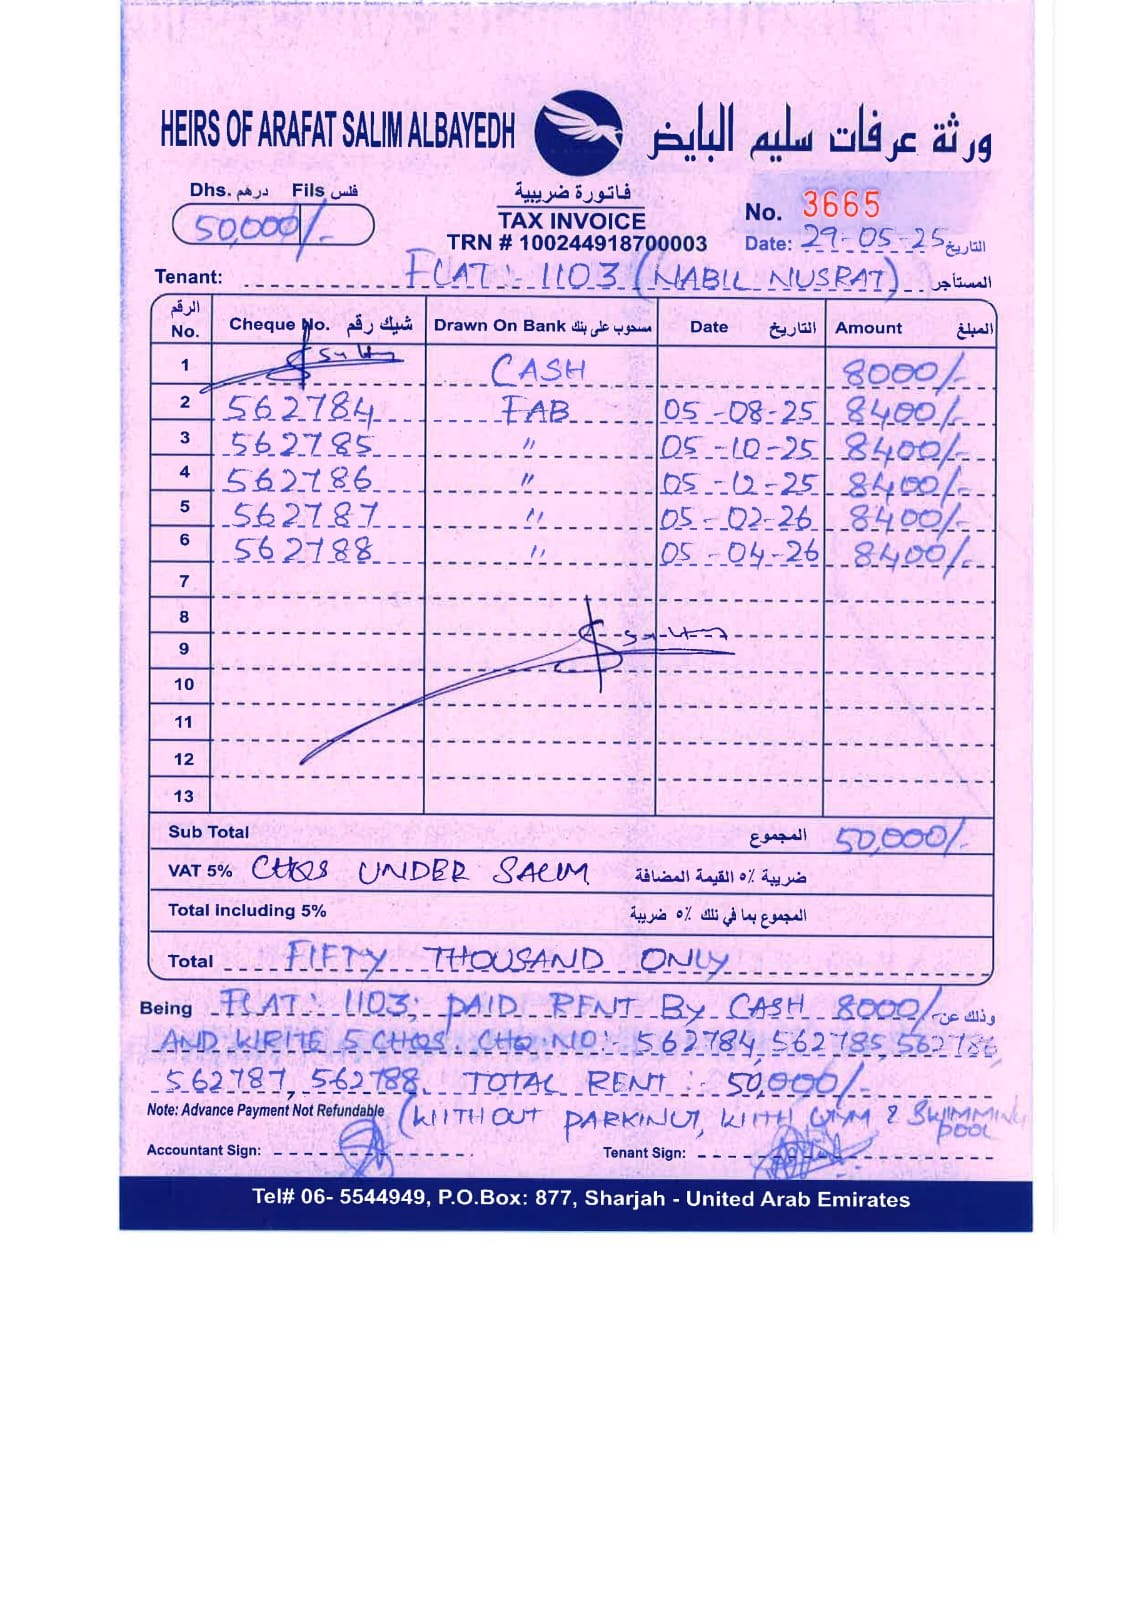 HEIRS OF ARAFAT SALIM ALBAYEDH ورثة عرفات سليم البايض
Dhs. درهم Fils فلس
50,000/-
فاتورة ضريبية
TAX INVOICE
TRN # 100244918700003
No. 3665
Date: 29-05-25 التاريخ
Tenant: FLAT:- 1103 (NABIL NUSRAT) المستأجر
الرقم No. Cheque No. شيك رقم Drawn On Bank مسحوب على بنك Date التاريخ Amount المبلغ
1 CASH 8000/-
2 562784 FAB 05-08-25 8400/-
3 562785 " 05-10-25 8400/-
4 562786 " 05-12-25 8400/-
5 562787 " 05-02-26 8400/-
6 562788 " 05-04-26 8400/-
7
8
9
10
11
12
13
Sub Total المجموع 50,000/-
VAT 5% CHQS UNDER SALIM ضريبة ٥٪ القيمة المضافة
Total including 5% المجموع بما في ذلك ٥٪ ضريبة
Total FIFTY THOUSAND ONLY
Being FLAT: 1103; PAID RENT By CASH 8000/- وذلك عن
AND WRITE 5 CHQS. CHQ NO:- 562784, 562785, 562786
562787, 562788. TOTAL RENT:- 50,000/-
Note: Advance Payment Not Refundable (WITHOUT PARKING, WITH GYM & SWIMMING POOL
Accountant Sign: Tenant Sign:
Tel# 06- 5544949, P.O.Box: 877, Sharjah - United Arab Emirates